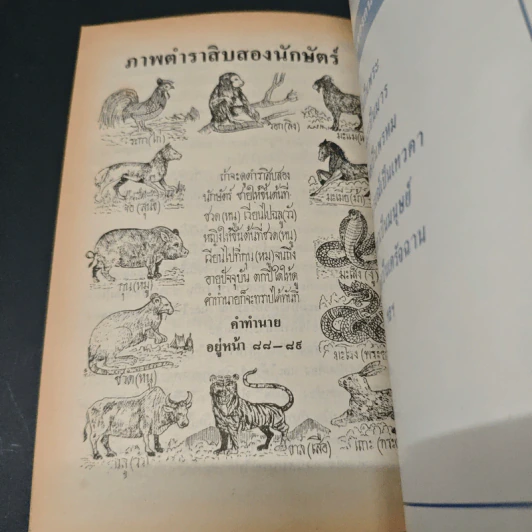 ภาพตำราสิบสองนักษัตร์
ระกา(ไก่)
วอก(ลิง)
มะแม(
จอ (สุนัข)
ถ้าจะดูตำราสิบสอง
นักษัตร์ ชายให้ขึ้นต้นที่
ชวด(หนู) เวียนไปฉลู(วัว)
หญิงให้ขึ้นต้นที่ชวด(หนู)
เวียนไปที่กุน(หมู)จนถึง
อายุปัจจุบัน ตกปีใดให้ดู
คำทำนายก็จะทราบได้ทันที
มะเมีย(ม้า
กุน(หมู)
มะเส็ง(งู
คำทำนาย
อยู่หน้า ๘๘—๘๙
ชวด(หนู)
มะโรง(พระ
ฉลู(วัว)
ขาล(เสือ)
เถาะ(กระ
เป็นเทวดา
เป็นมนุษย์